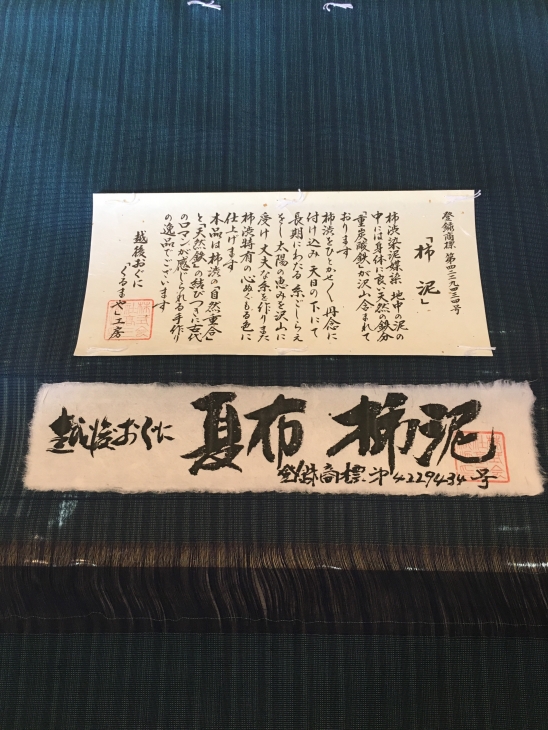 登録商標 第四二二九四三四号
「柿泥」
柿渋染泥媒染 地中の泥の
中には身体に良い天然の鉄分
「重炭酸鉄」が沢山含まれて
おります
柿渋をひとかせづゝ丹念に
付け込み 天日の下にて
長期にわたる糸ごしらえ
をし 太陽の恵みを沢山に
受け 丈夫な糸を作りまた
柿渋特有の心ぬくもる色に
仕上げます
本品は柿渋の「自然重合」
と「天然鉄」の結びつきに古代
のロマンが感じられる手作り
の逸品でございます
越後おぐに
「くるまや」工房
越後おぐに 夏布 柿泥
登録商標 第4229434号